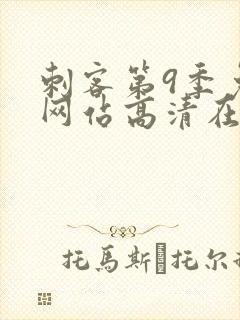 刺客第9季
网佔高清在
托馬斯 托尔